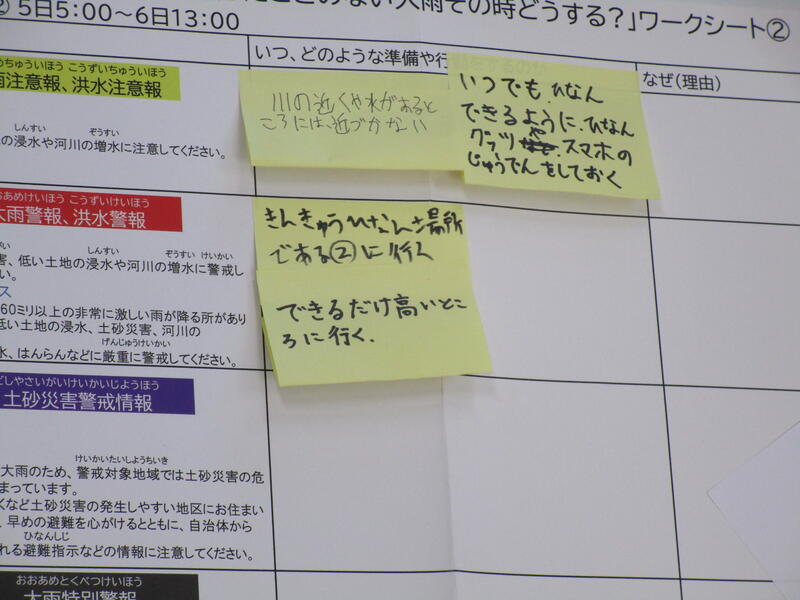 たことのない大雨その時どうする？」ワークシート②
② 5日5:00～6日13:00
いつ、どのような準備や行
なぜ（理由）
ちゅういほう こうずいちゅういほう
雨注意報、洪水注意報
しんすい ぞうすい
の浸水や河川の増水に注意してください。
川の近くや水があると
ころには、近づかない
いつでも、ひなん
できるように、ひなん
グッツや、スマホの
じゅうでんをしておく
おおあめけいほう こうずいけいほう
大雨警報、洪水警報
しんすい ぞうすい けいかい
害、低い土地の浸水や河川の増水に警戒し
い。
ス
60ミリ以上の非常に激しい雨が降る所があり
低い土地の浸水、土砂災害、河川の
げんじゅうけいかい
水、はんらんなどに厳重に警戒してください。
きんきゅうひなん場所
である②に行く
できるだけ高いとこ
ろに行く.
どしゃさいがいけいかいじようほう
土砂災害警戒情報
けいかいたいしようちいき
大雨のため、警戒対象地域では土砂災害の危
まっています。
くなど土砂災害の発生しやすい地区にお住まい
、早めの避難を心がけるとともに、自治体から
ひなんしじ
れる避難指示などの情報に注意してください。
おおあめとくべつけいほう
大雨特別警報